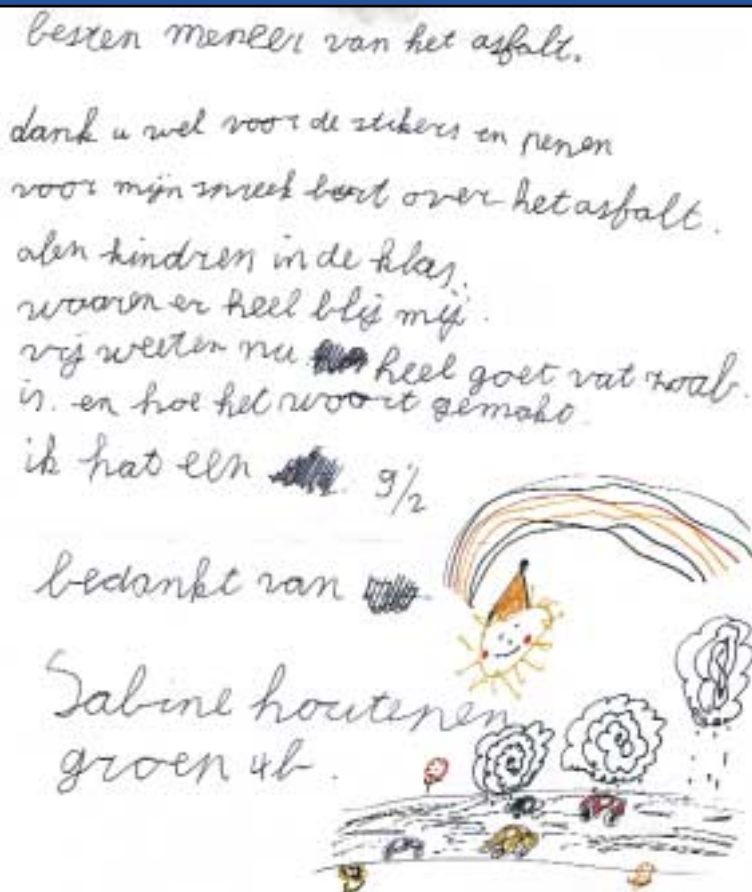 besten meneer van het asfalt.
dank u wel voor de stikers en penen
voor mijn spreek burt over het asfalt.
alen kindren in de klas.
waaren er heel blij mij.
wij weeten nu heel goet wat zoab.
is. en hoe het woort gemakt.
ik hat een 9½
bedankt van
Sabine houtepen
groep 4b.